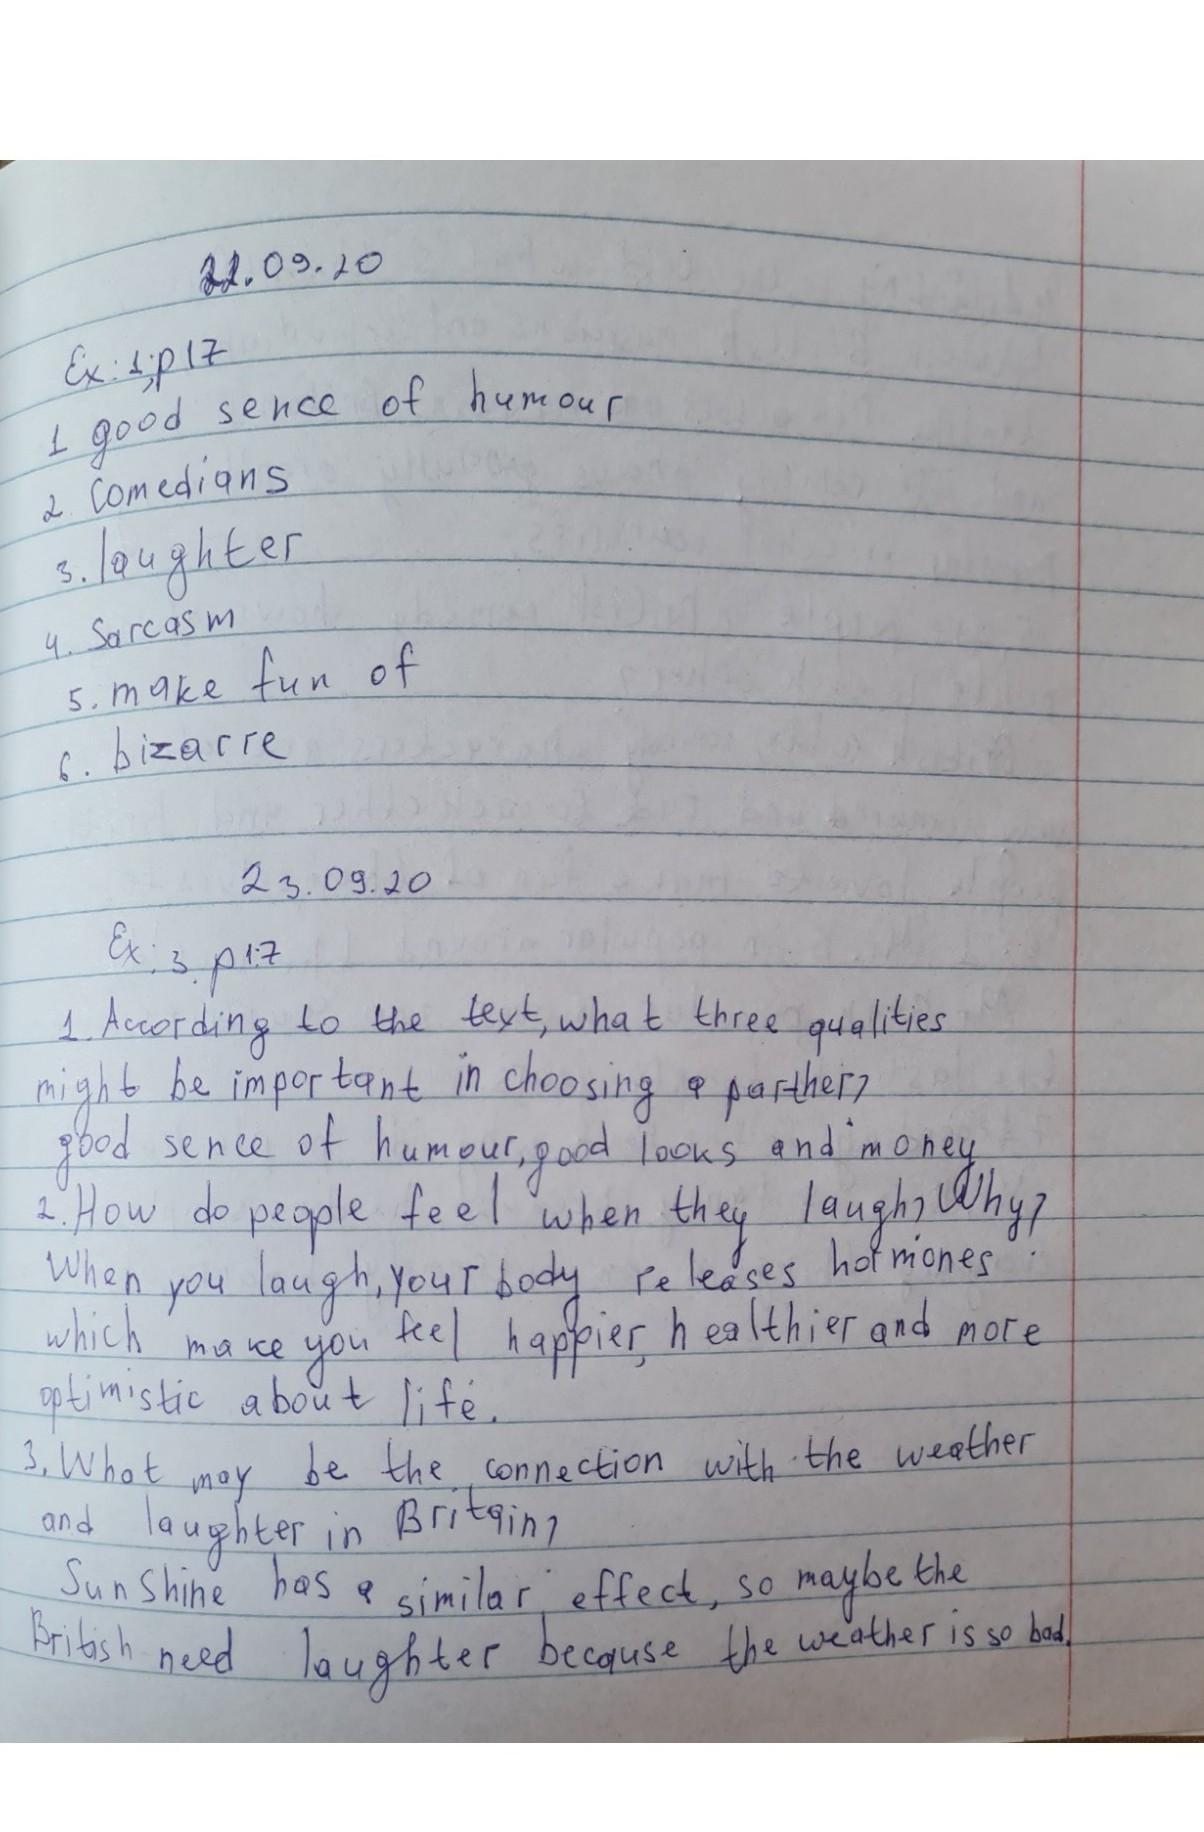 22.09.20
Ex: 1; p 17
1 good sence of humour
2. Comedians
3. laughter
4. Sarcasm
5. make fun of
6. bizarre
23.09.20
Ex: 3. p 17
1. According to the text, what three qualities
might be important in choosing a parther?
good sence of humour, good looks and money
2. How do people feel when they laugh? Why?
When you laugh, your body releases hormones
which make you feel happier, healthier and more
optimistic about life.
3. What may be the connection with the weather
and laughter in Britain?
Sunshine has a similar effect, so maybe the
British need laughter because the weather is so bad.